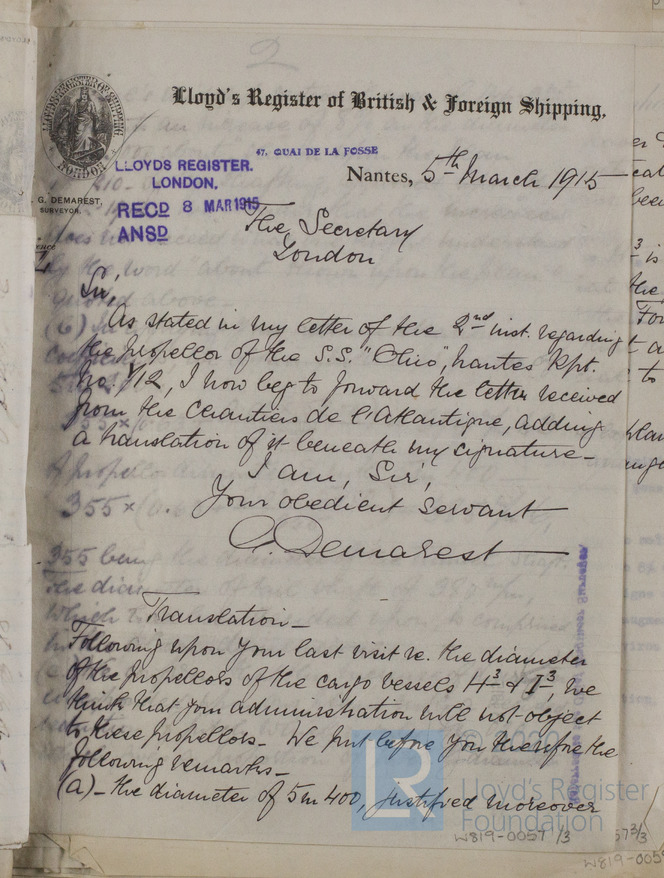 2
Lloyd's Register of British & Foreign Shipping,
LLOYD'S REGISTER OF SHIPPING
LONDON
47, QUAI DE LA FOSSE
Nantes, 5th March 1915
G. DEMAREST,
SURVEYOR.
LLOYDS REGISTER.
LONDON.
RECD 8 MAR 1915
ANSD
The Secretary
London
Sir,
As stated in my letter of the 2nd inst. regarding
the propellor of the S.S. "Ohio", Nantes Rpt.
No. 712, I now beg to forward the letter received
from the Chantiers de l'Atlantique, adding
a translation of it beneath my signature_
I am, Sir,
Your obedient Servant
G. Demarest
Translation_
Following upon your last visit re. the diameter
of the propellors of the cargo vessels H3 & I3, we
think that your administration will not object
to these propellors_ We put before you therefore the
following remarks_
(a)_ the diameter of 5m400, justified moreover
LR
© 2020
Lloyd's Register
Foundation
W819-0057 /3